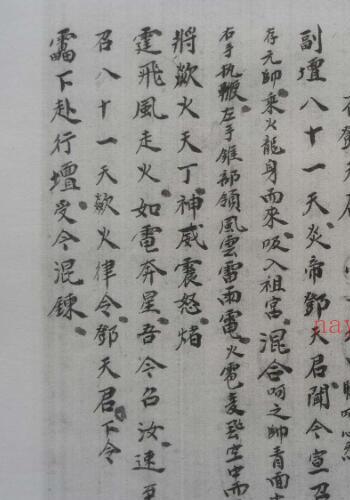 副壇八十一天炎帝鄧天君聞令宣召
存元帥乘火龍身而來吸入祖宮混合呵之帥青面
右手执鞭左手錐部領風雲雷雨電火雹
將歘火天丁神威震怒
霆飛風走火如電奔星吾今召汝速
召八十一天歘火律令鄧天君下令
下赴行壇受令混鍊
nay